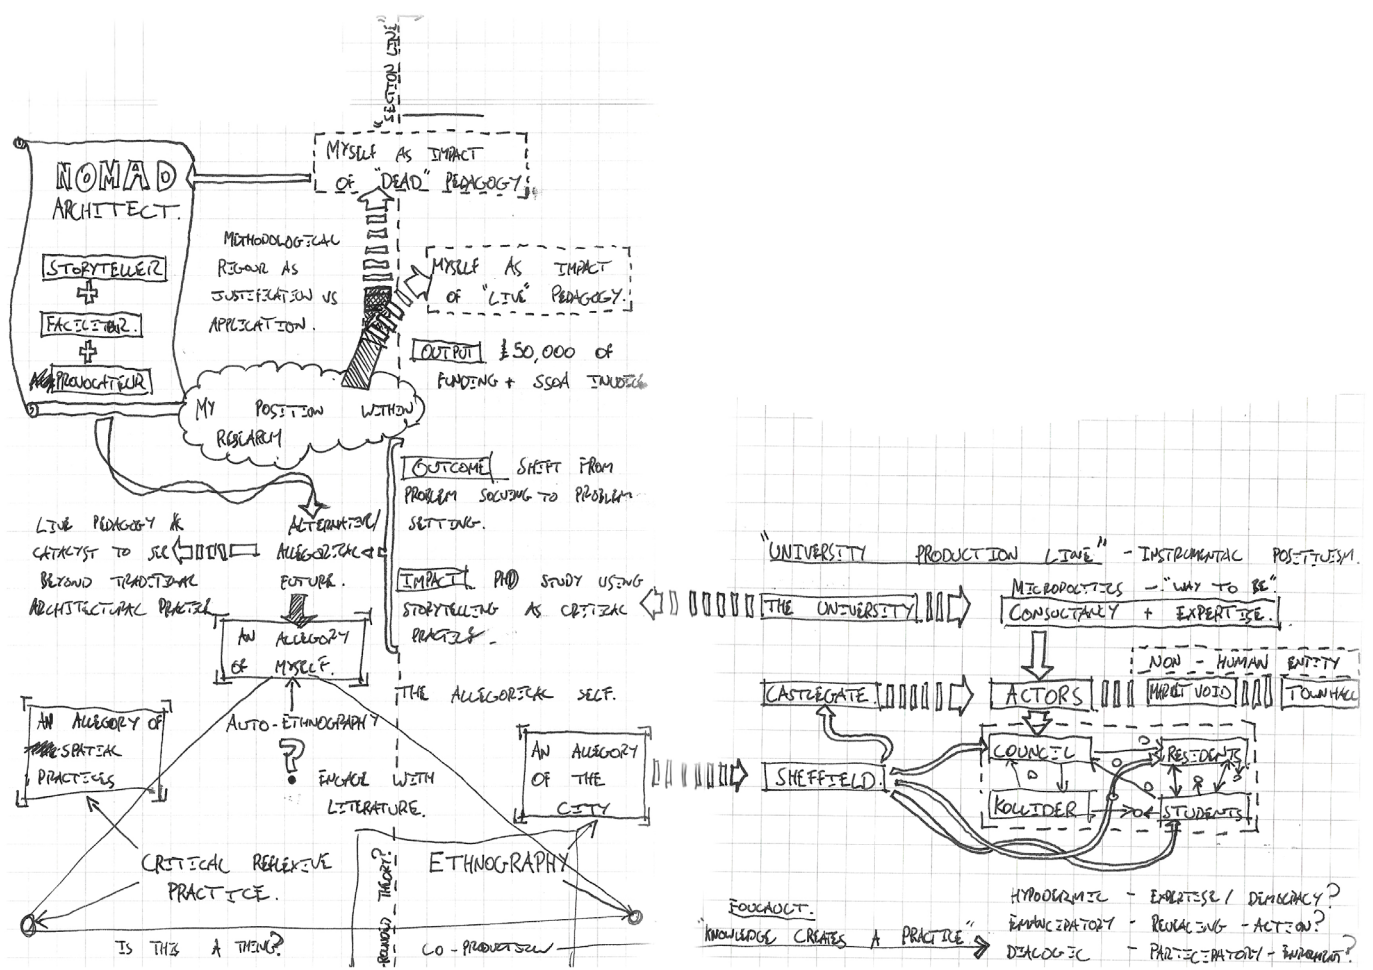 "SECTION LINE"
MYSELF AS IMPACT
OF "DEAD" PEDAGOGY.
NOMAD
ARCHITECT.
STORYTELLER
+
+
PROVOCATEUR
METHODOLOGICAL
RIGOUR AS
JUSTIFICATION VS
APPLICATION.
MYSELF AS IMPACT
OF "LIVE" PEDAGOGY.
OUTPUT £50,000 OF
FUNDING + SSOA
MY POSITION WITHIN
RESEARCH
OUTCOME SHIFT FROM
PROBLEM SOLVING TO PROBLEM
SETTING.
IMPACT PHD STUDY USING
STORYTELLING AS CRITICAL
PRACTICE.
LIVE PEDAGOGY
CATALYST TO SEE
BEYOND TRADITIONAL
ARCHITECTURAL PRACTICE
ALTERNATIVE/
ALLEGORICAL
FUTURE.
AN ALLEGORY
OF MYSELF.
THE ALLEGORICAL SELF.
AUTO-ETHNOGRAPHY
?
ENGAGE WITH
LITERATURE.
AN ALLEGORY OF
SPATIAL
PRACTICES
AN ALLEGORY
OF THE
CITY
CRITICAL REFLEXIVE
PRACTICE.
ETHNOGRAPHY
THEORY?
IS THIS A THING?
CO-PRODUCTION
"UNIVERSITY PRODUCTION LINE" - INSTRUMENTAL POSITIVISM.
MICROPOLITICS - "WAY TO BE"
THE UNIVERSITY
CONSULTANCY + EXPERTISE.
NON-HUMAN ENTITY
CASTLEGATE
ACTORS
MARKET VOID
TOWNHALL
SHEFFIELD.
COUNCIL
RESIDENTS
KOLLIDER
STUDENTS
FOUCAULT.
"KNOWLEDGE CREATES A PRACTICE"
HYPODERMIC - EXPERTISE/DEMOCRACY?
EMANCIPATORY - REVEALING - ACTION?
DIALOGIC - PARTICIPATORY -